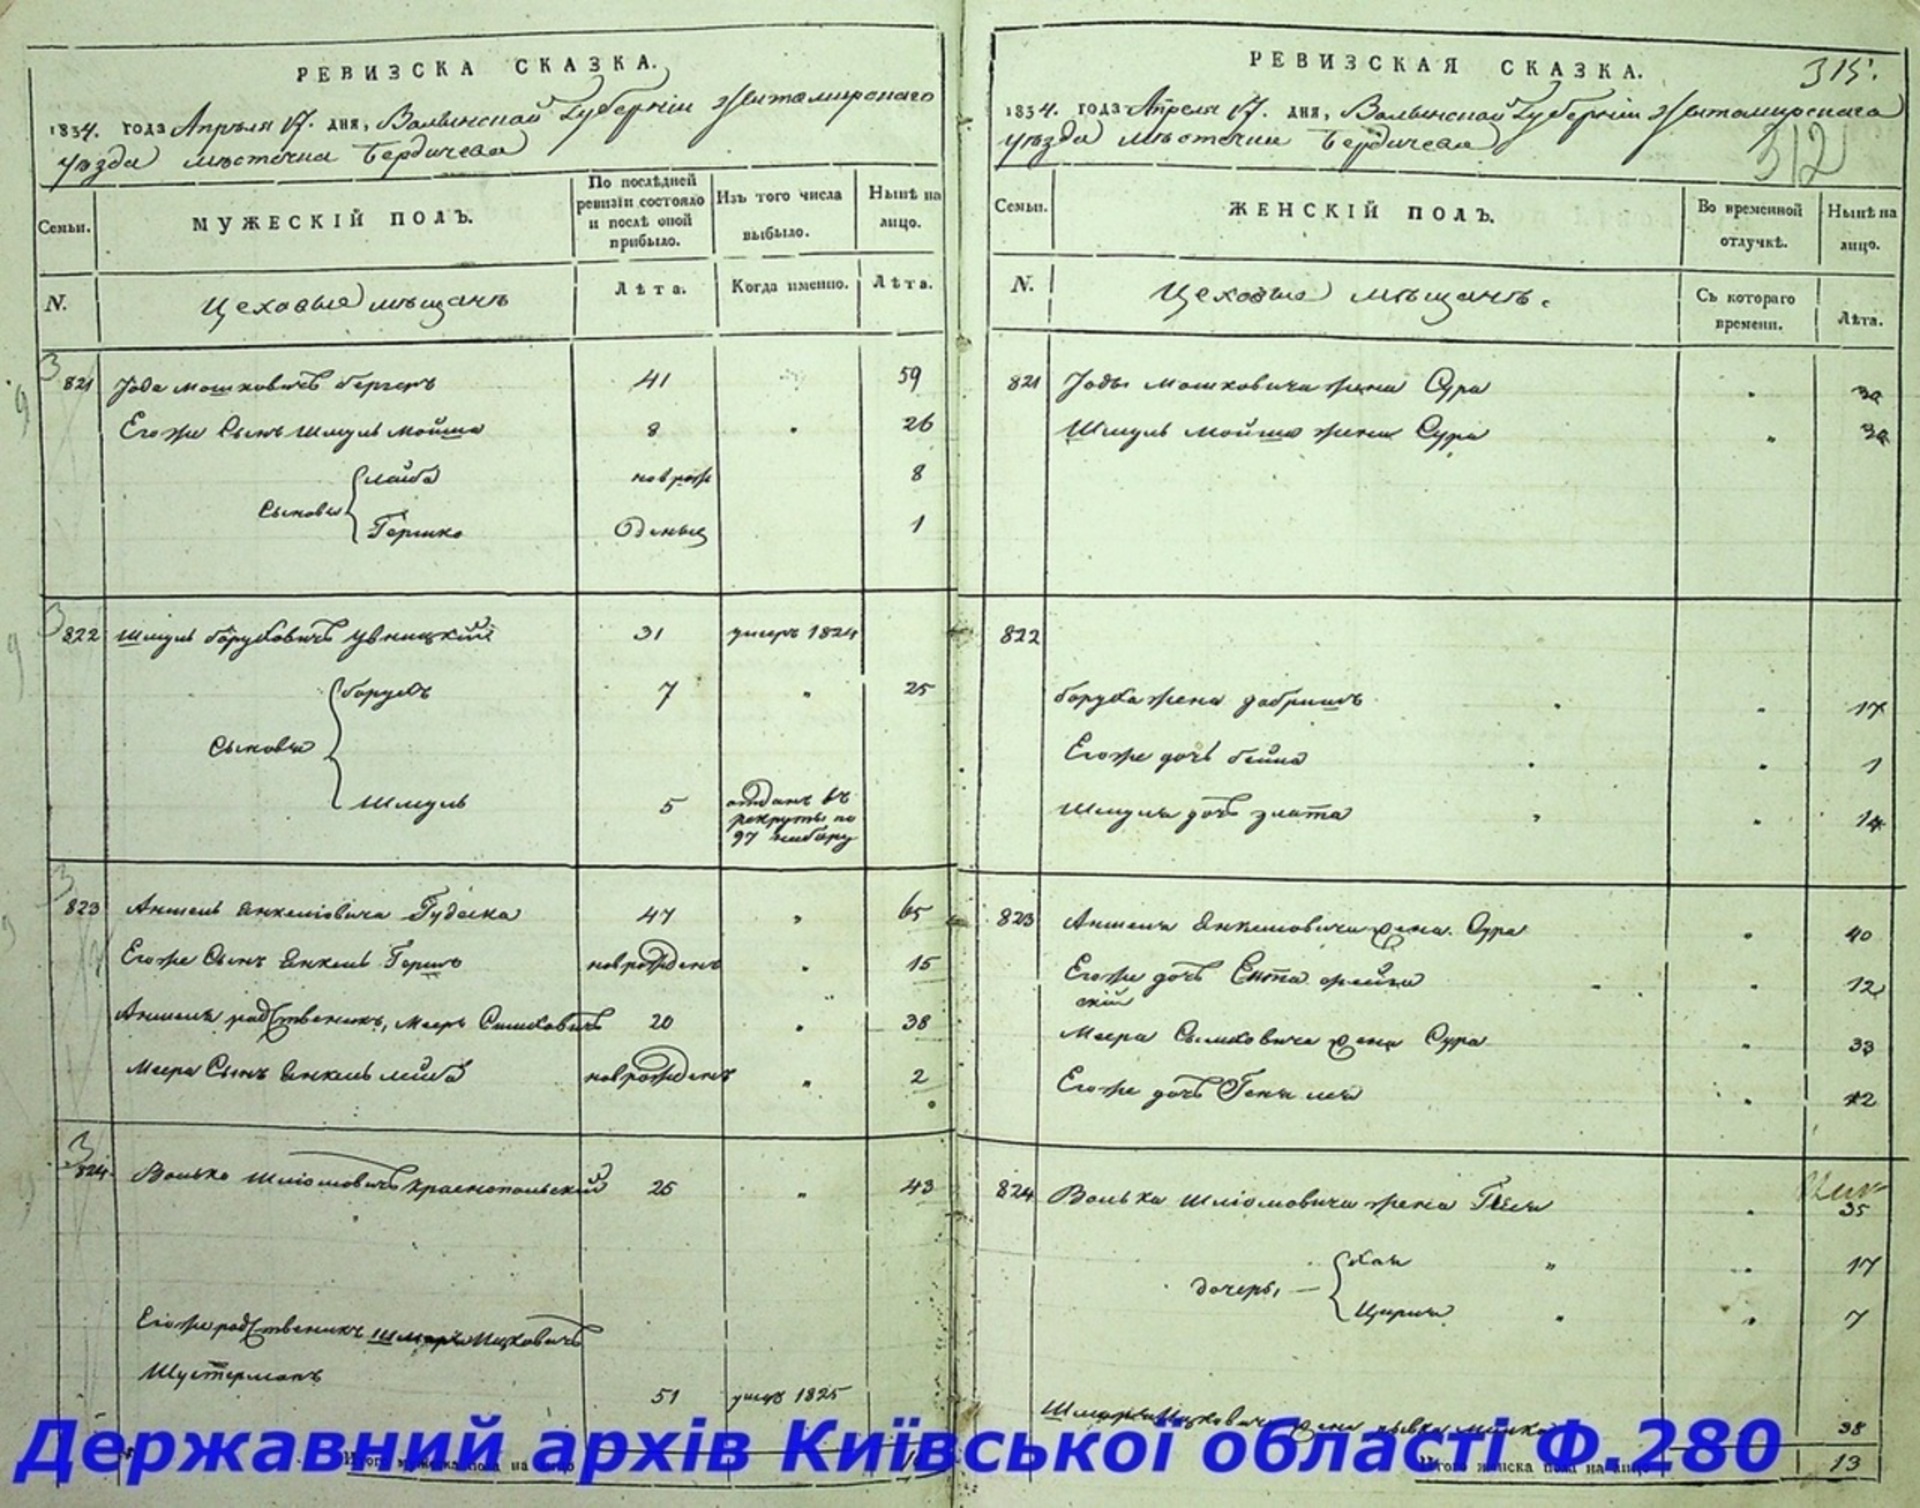 РЕВИЗСКА СКАЗКА.
1834. года Апрѣля 17. дня, Волынской Губерніи Житомирскаго
уѣзда мѣстечка Бердичева
Семьи.
МУЖЕСКІЙ ПОЛЪ.
По послѣдней ревизіи состояло и послѣ оной прибыло.
Изъ того числа выбыло.
Нынѣ на лицо.
N.
Цеховые мѣщане
Лѣта.
Когда именно.
Лѣта.
821 Іода Мошковичъ 41 59
Его же Сынъ Шмуль Мойша 8 26
Сыновья
Лейба новрож 8
Гершко Оденыц 1
822 Шмуль Боруховичъ 31 умеръ 1824
Сыновья
Борухъ 7 25
Шмуль 5 отданъ въ
рекруты по
97 набору
823 Аншель Янкеліовича 47 65
Его же Сынъ Янкель Гершъ новрожденъ 15
Аншеля родственикъ, Мееръ Симховичъ 20 38
Меера Сынъ Янкель Лейба новрожденъ 2
824. Волько Шліомовичъ Краснопольскій 25 43
Его же родственикъ Шмерко Ицковичъ
Шустерманъ
51 умеръ 1825
Итого мужеска пола на лицо
РЕВИЗСКАЯ СКАЗКА.
315.
1834. года Апреля 17. дня, Волынской Губерніи Житомирскаго
512
уѣзда мѣстечки Бердичева
Семьи.
ЖЕНСКІЙ ПОЛЪ.
Во временной отлучкѣ.
Нынѣ на лицо.
N.
Цеховые мѣщанъ.
Съ котораго времени.
Лѣта.
821 Іоды Мошковича жена Сура
Шмуль Мойша жена Сура
822
Боруха жена Добришъ 17
Его же дочь Бейла 1
Шмуля дочь Злата 14
823 Аншеля Янкеліовича жена Сура 40
Его же дочь Ента Фейга 12
скій
Меера Сымховича жена Сура 33
Его же дочь Геня Лея 12
824 Волька Шліомовича жена 35
дочери, —
Хая 17
Цирля 7
жена 38
Итого женска пола на лицо 13
Державний архів Київської області Ф.280